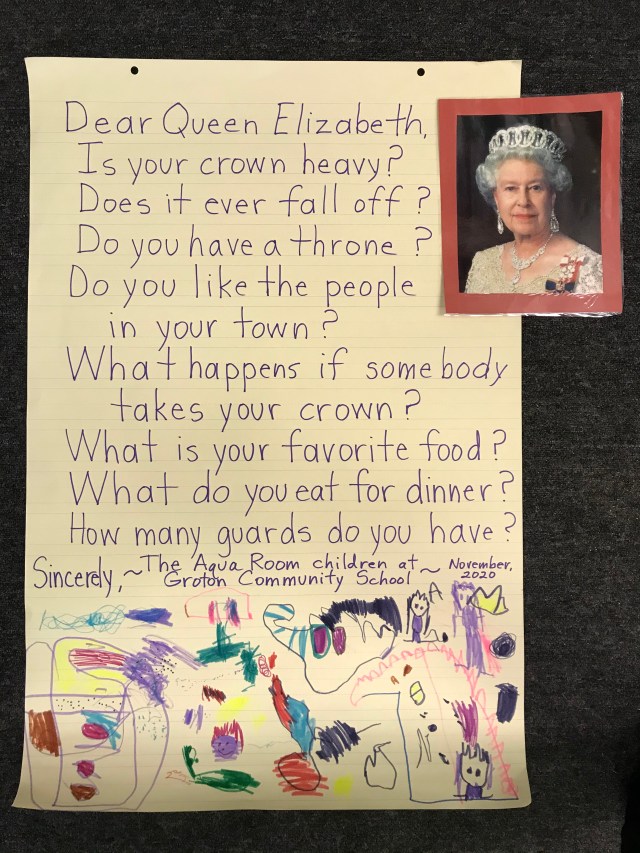 Dear Queen Elizabeth,
Is your crown heavy?
Does it ever fall off?
Do you have a throne?
Do you like the people
in your town?
What happens if somebody
takes your crown?
What is your favorite food?
What do you eat for dinner?
How many guards do you have?
Sincerely, ~The Aqua Room children at~ November,
Groton Community School 2020
A